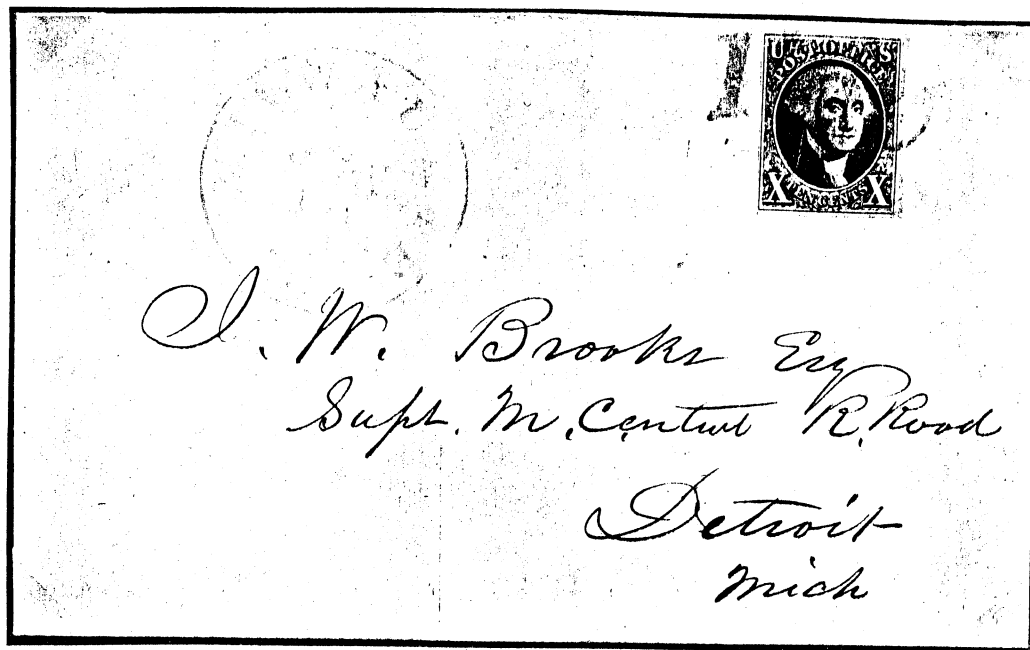 U S
POST OFFICE
X TEN CENTS X
J. W. Brooks Esq
Supt. M. Central R. Road
Detroit
Mich